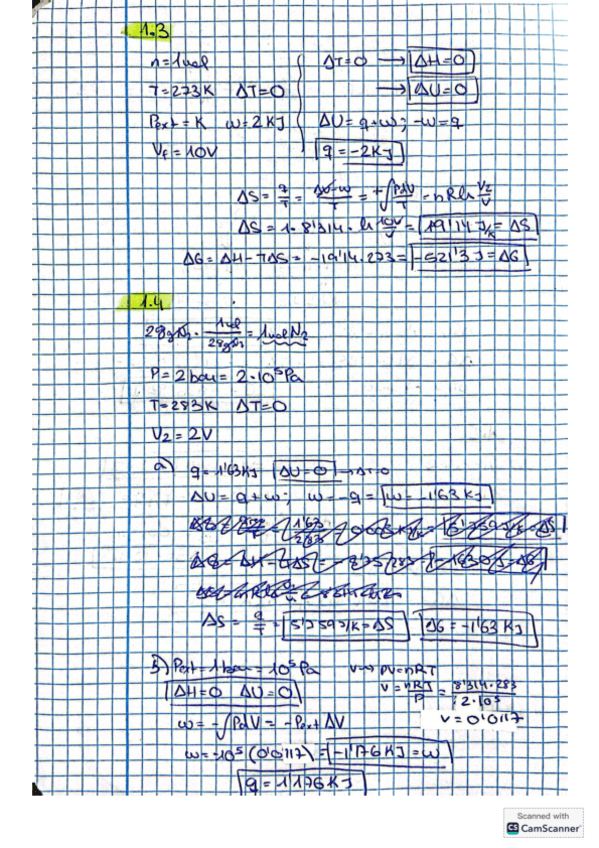 1.3
n=1mol
T=273K ΔT=0
Pext=K w=2KJ
Vf=10V
ΔT=0 → ΔH=0
→ ΔU=0
ΔU=q+w; -w=q
q=-2KJ
ΔS= q/T = (ΔU-w)/T = +∫PdV/T = nRln V2/V
ΔS=1·8'314·ln 10V/V = 19'14 J/K = ΔS
ΔG=ΔH-TΔS= -19'14·273= -521'3 J=ΔG
1.4
28gN2· 1mol/28gN2 = 1molN2
P=2bar=2·10⁵Pa
T=283K ΔT=0
V2=2V
a) q=1'63KJ ΔU=0 → ΔT=0
ΔU=q+w; w=-q= w=-1'63KJ
ΔS= q/T = 5'759J/K=ΔS ΔG=-1'63KJ
b) Pext=1bar=10⁵Pa
ΔH=0 ΔU=0
w=-∫PdV= -Pext ΔV
V→ PV=nRT
V= nRT/P = 8'314·283/2·10⁵
V=0'0117
w=-10⁵(0'0117)= -1'176KJ=w
q=1'176KJ
Scanned with
CS CamScanner